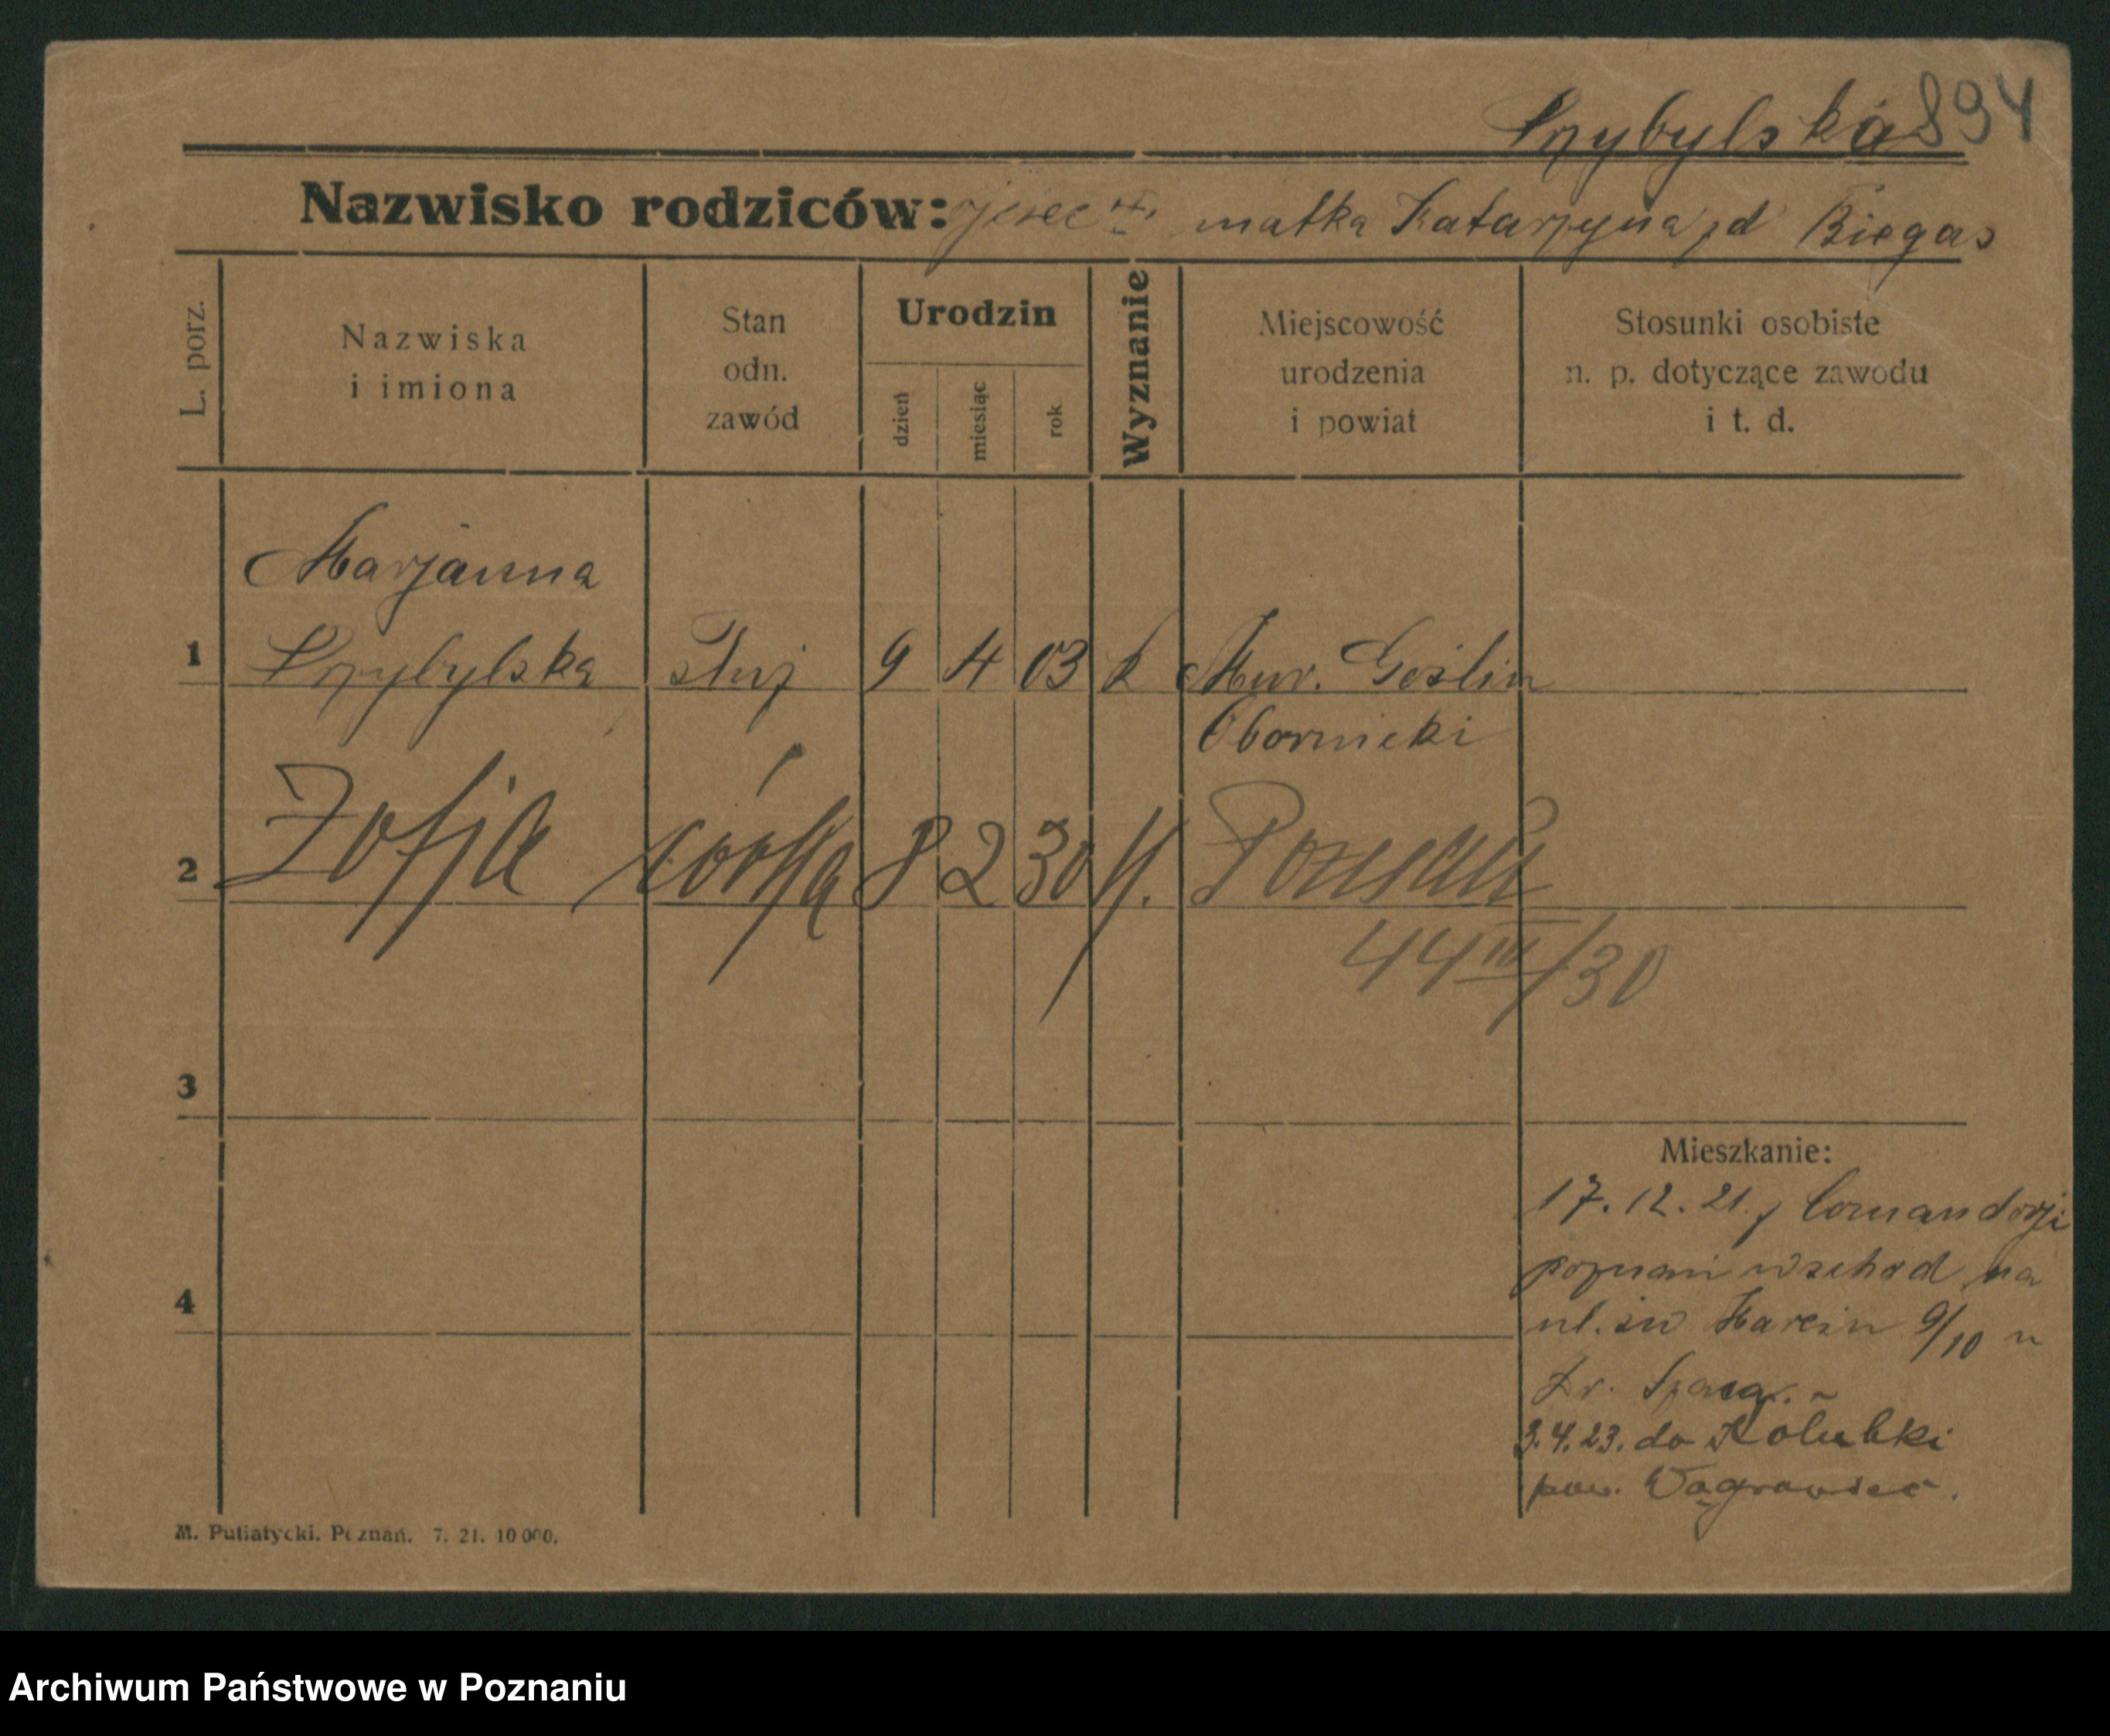 Przybylska 894
Nazwisko rodziców: ojciec matka Katarzyna zd Biegas
L. porz.
Nazwiska
i imiona
Stan
odn.
zawód
Urodzin
dzień
miesiąc
rok
Wyznanie
Miejscowość
urodzenia
i powiat
Stosunki osobiste
n. p. dotyczące zawodu
i t. d.
Marjanna
1 Przybylska służ 9 4 03 k Mur. Goślin
Obornicki
2 Zofja córka 8 2 30 k. Poznań
44 IV/30
3
Mieszkanie:
17. 12. 21. z Comandorji
poznań wschod na
4
ul. św Marcin 9/10 u
Dr.
3.4.23. do Kolubki
pow. Wągrowiec.
M. Putiatycki. Poznań. 7. 21. 10 000.
Archiwum Państwowe w Poznaniu